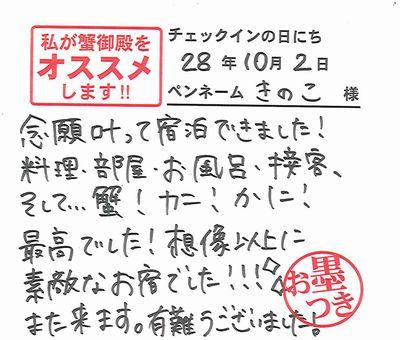 私が蟹御殿を
オススメ
します!!
チェックインの日にち
28年10月2日
ペンネーム きのこ 様
念願叶って宿泊できました!
料理・部屋・お風呂・接客、
そして…蟹!カニ!かに!
最高でした!想像以上に
素敵なお宿でした!!!
また来ます。有難うございました!
お墨つき